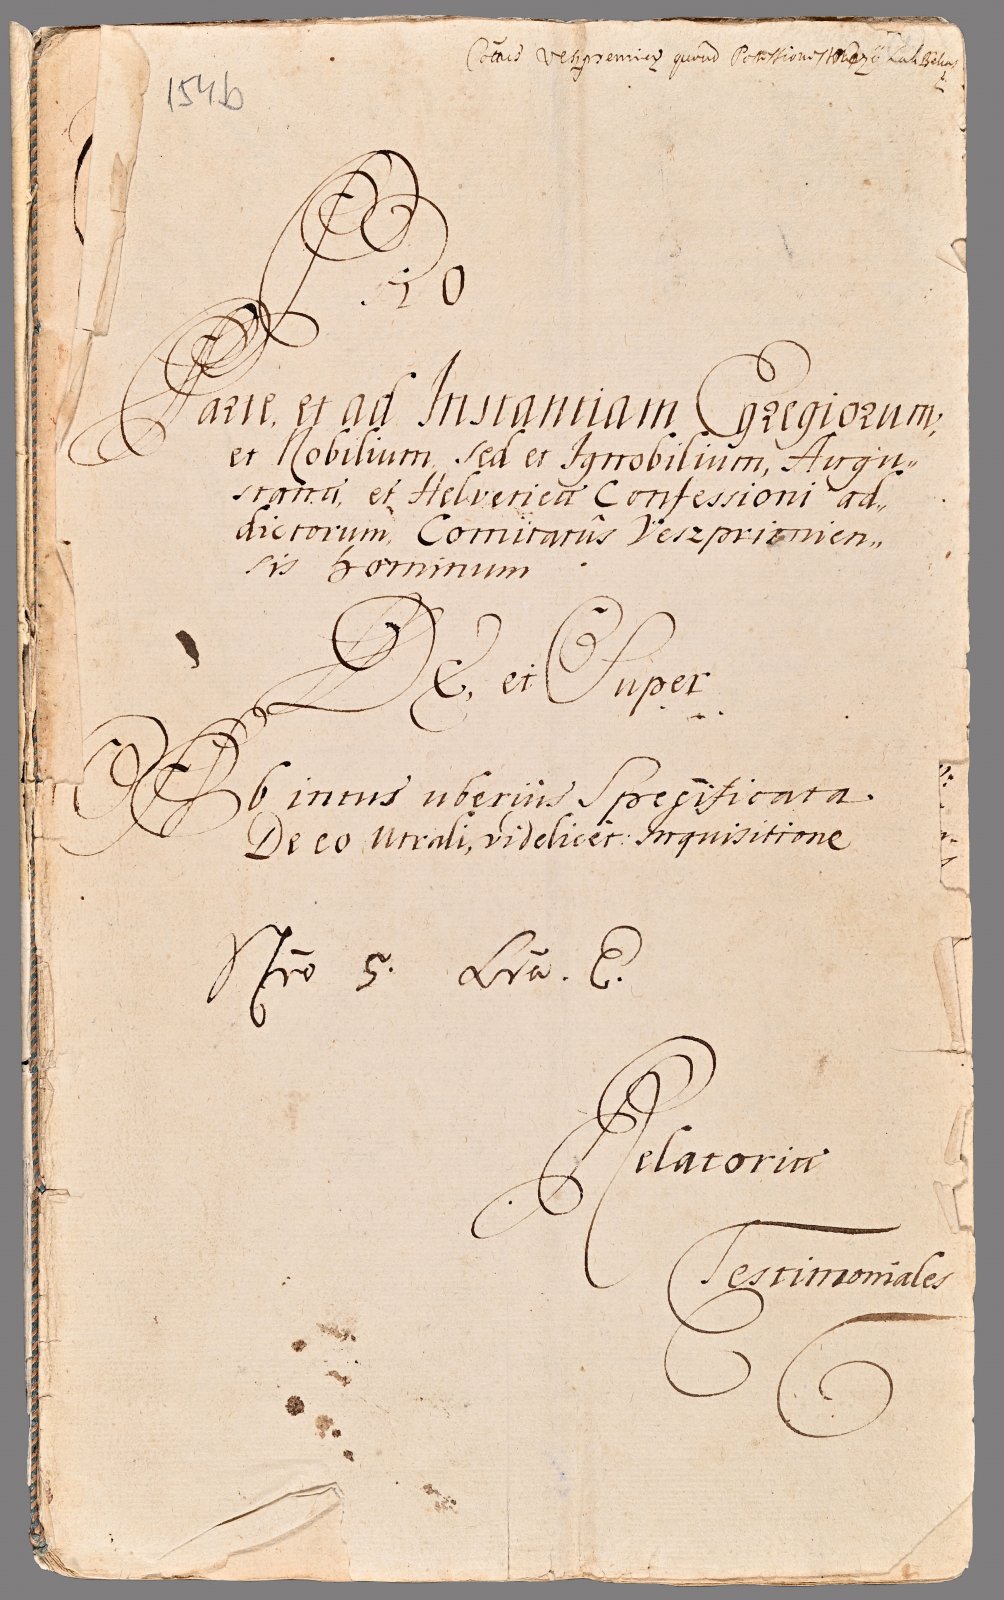 Cõttus Veszpremiens quoad Possessiones
154b
Pro
Parte, et ad Instantiam Egregiorum,
et Nobilium, sed et Ignobilium, Augu-
stanæ, et Helveticæ Confessioni ad-
dictorum, Comitatûs Veszprimien-
sis hominum
De, et Super
Ab intus uberius Specificata
De eo Utrali, videlicet: Inquisitione
Nrõ 5. Lrã. E.
Relatoriæ
Testimoniales